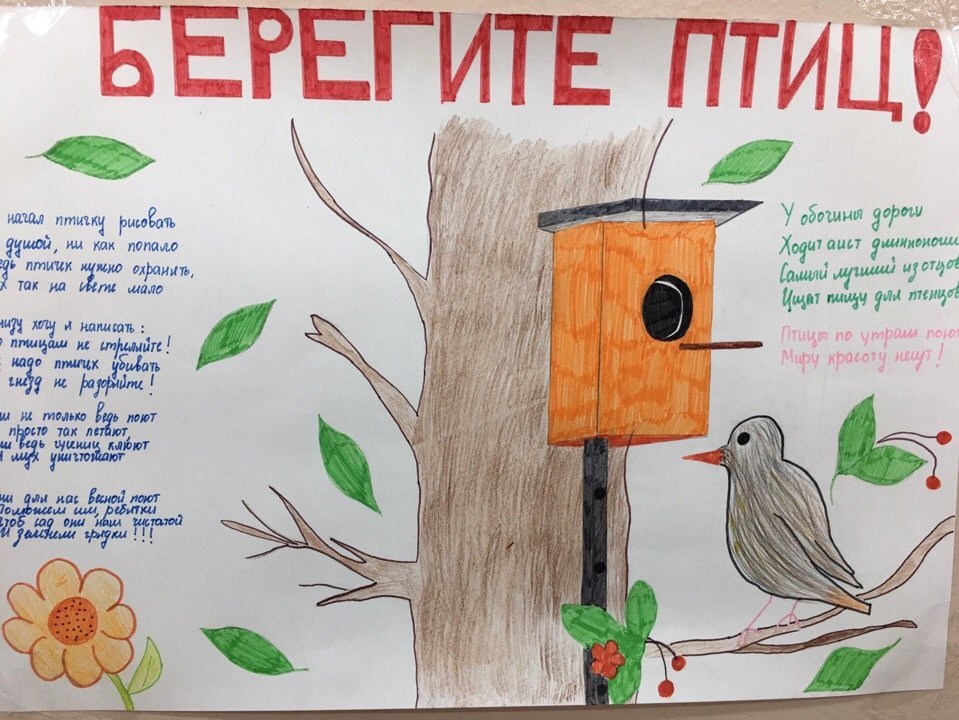 БЕРЕГИТЕ ПТИЦ!
начал птичку рисовать
душой, ни как попало
едь птичк нужно охранить,
х так на свете мало
низу хочу я написать:
птицам не стреляйте!
надо птичк убивать
гнезд не разоряйте!
не только ведь поют
просто так летают
ведь гусениц клюют
мух уничтожают
для нас весной поют
Поможем им, ребятки
чтоб сад они наш чистатой
И зелинели грядки!!!
У обочины дороги
Ходит аист длинноноги
Самый лучший из отцов
Ищит пищу для птенцов
Птицы по утрам поют
Миру красоту несут!